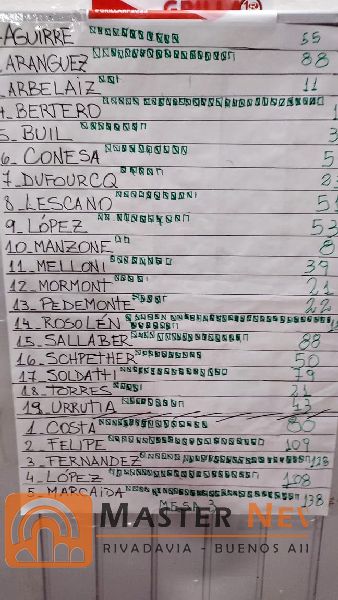 GRILL
AGUIRRE 55
ARANGUEZ 88
ARBELAIZ 11
BERTERO
5_BUIL 3
6_ CONESA 5
7_DUFOURCQ 23
8_LESCANO 51
9_ LÓPEZ 53
10_MANZONE 8
11_MELLONI 39
12_MORMONT 21
13_PEDEMONTE 22
14_ROSOLÉN
15_SALLABER 88
16_SCHPETHER 50
17_SOLDATTI 79
18_TORRES 21
19_URRUTIA 43
1_ COSTA 80
2_ FELIPE 109
3_ FERNANDEZ 128
4_ LÓPEZ 108
5_ MARCAIDA 138
MESA 3
MASTER NEW
RIVADAVIA - BUENOS AI